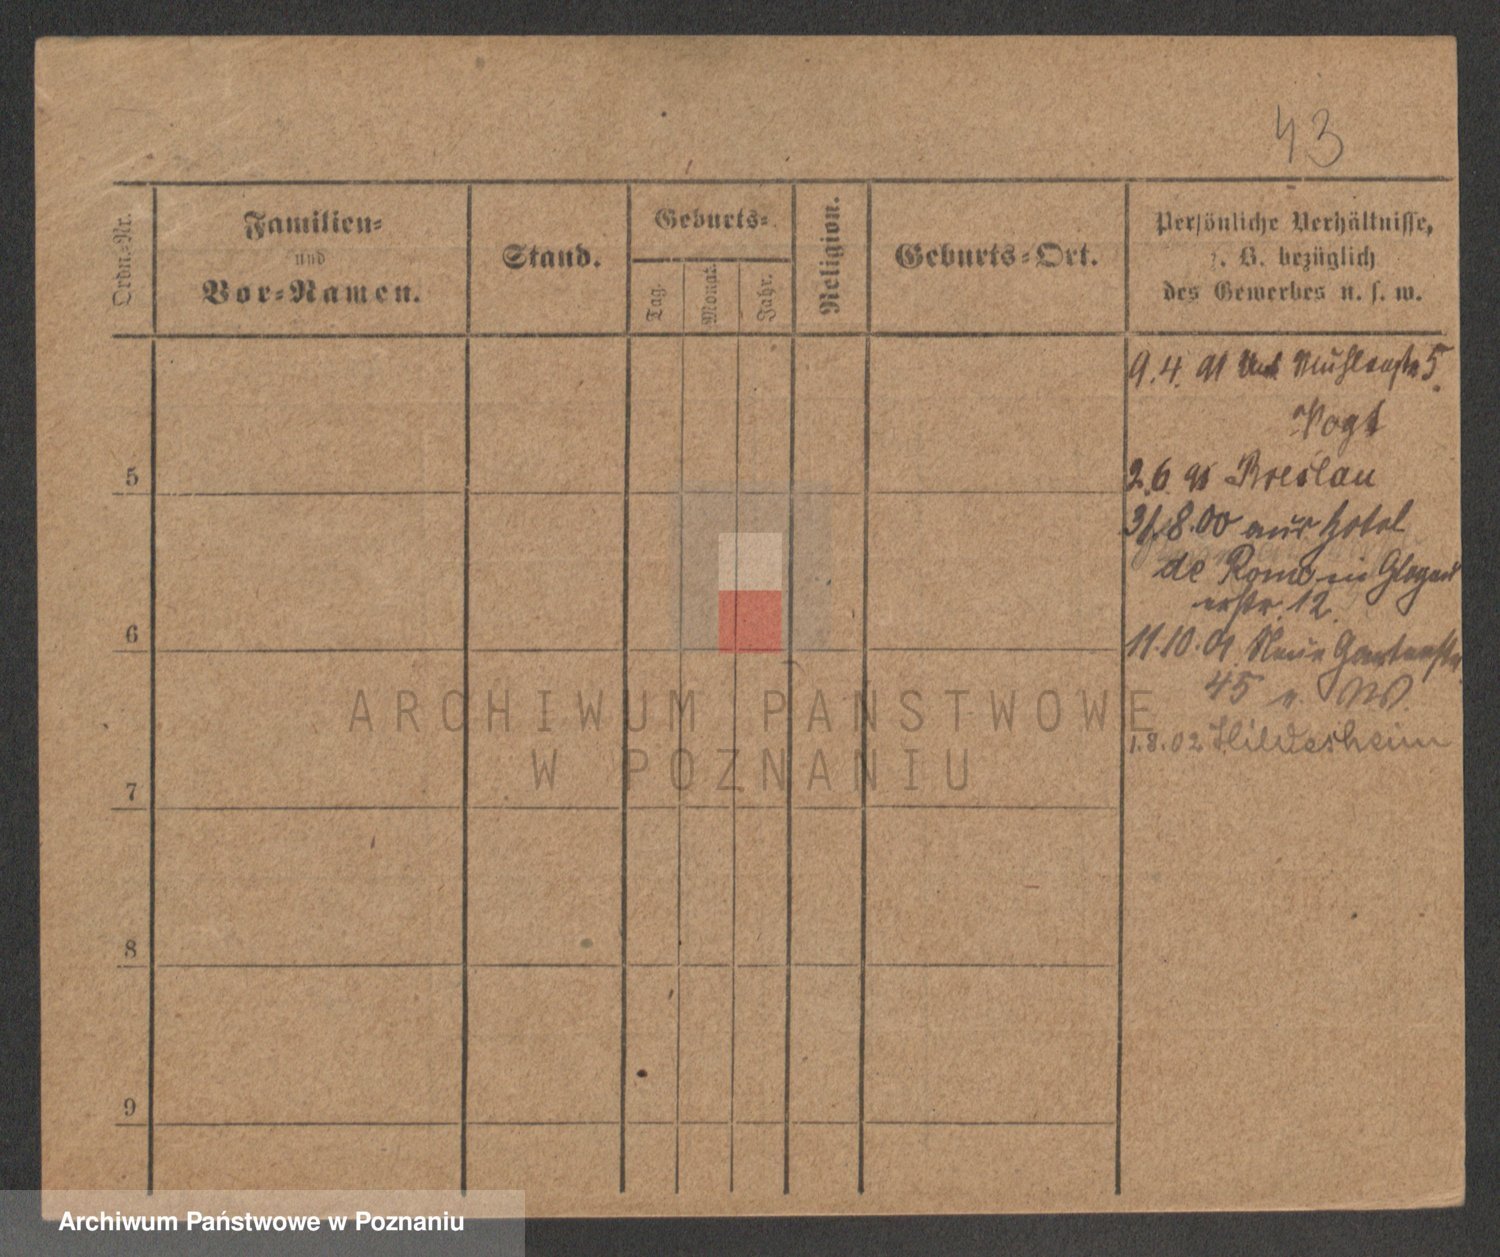 43
Ordn.-Nr.
Familien-
und
Vor-Namen.
Stand.
Geburts-
Tag.
Monat.
Jahr.
Religion.
Geburts-Ort.
Persönliche Verhältnisse,
z. B. bezüglich
des Gewerbes u. s. w.
9.4. 91 Mühlenstr 5.
Vogt
5
2.6. 91 Breslau
31.8.00 aus Hotel
de Rome in Glogau
erstr. 12.
6
11.10.01 Neue Gartenstr.
45 W.
1.8.02 Hildesheim
7
8
9
ARCHIWUM PAŃSTWOWE
W POZNANIU
Archiwum Państwowe w Poznaniu